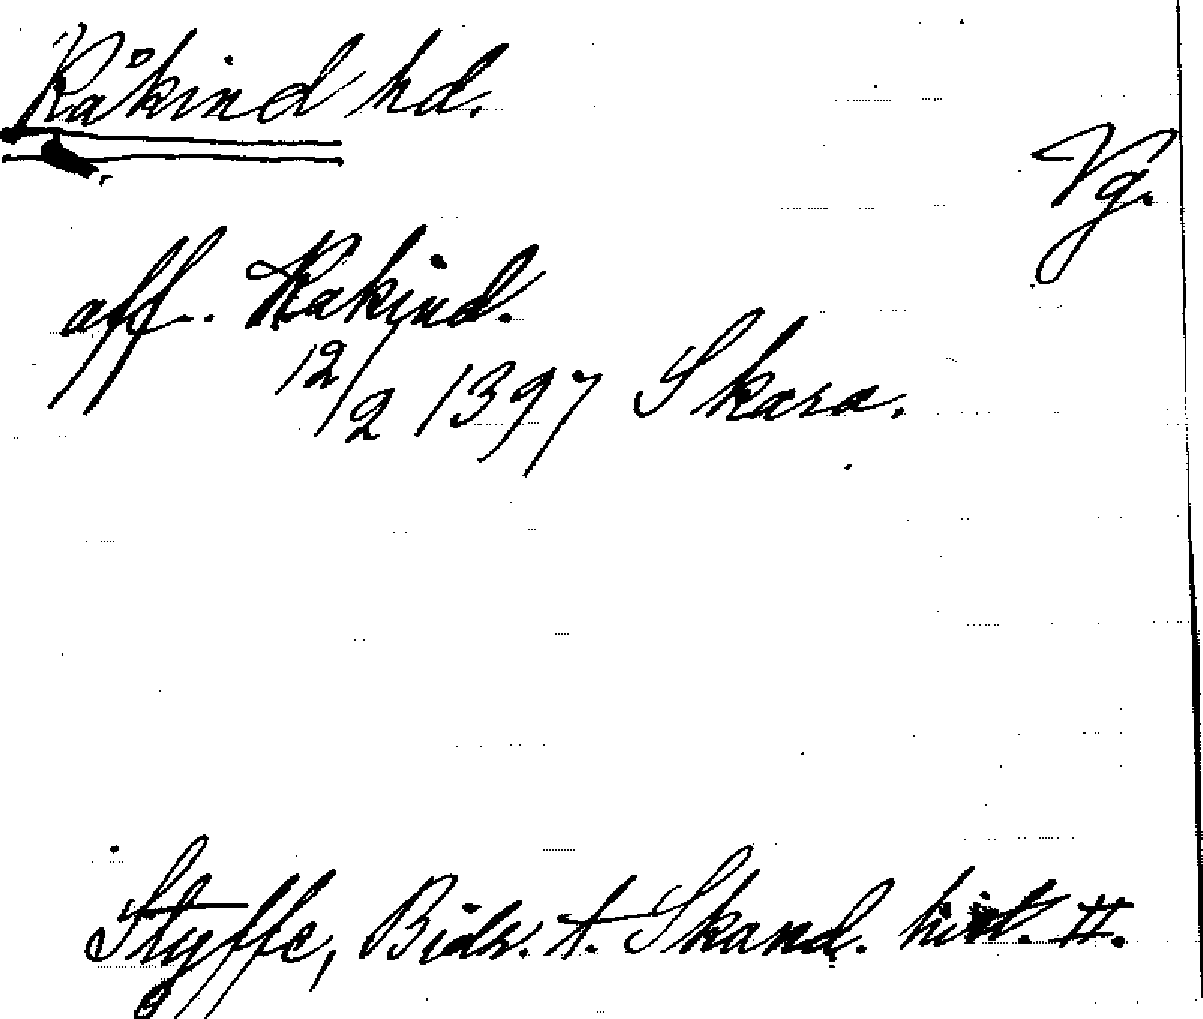 Kåkind hd.
Vg.
aff. Kakind.
12/2 1397 Skara.
Styffe, Bidr. t. Skand. hist. II.